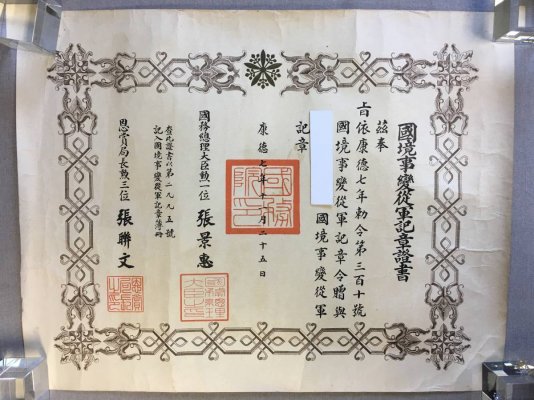 國境事變從軍記章證書
茲奉
上旨依康德七年勅令第三百十號
國境事變從軍記章令贈與
國境事變從軍
記章
康德七年十一月二十五日
國務總理大臣勲一位 張景惠
查此證書以第二九九五號
記入國境事變從軍記章簿冊
恩賞局長勲三位 張聯文
國務院印